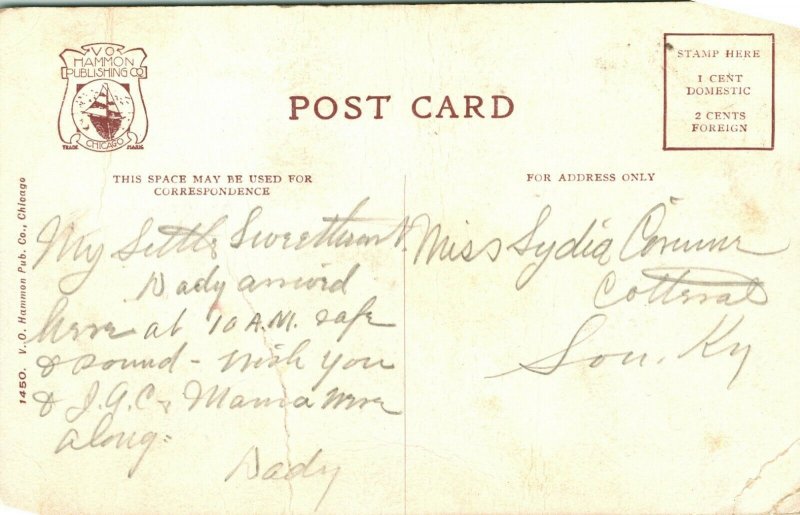 V O
HAMMON
PUBLISHING CO
CHICAGO
TRADE MARK
POST CARD
STAMP HERE
1 CENT
DOMESTIC
2 CENTS
FOREIGN
THIS SPACE MAY BE USED FOR
CORRESPONDENCE
FOR ADDRESS ONLY
1450. V. O. Hammon Pub. Co., Chicago
My Little Sweetheart.
Dady arrived
here at 10 A.M. safe
& sound - wish you
& J.G.C. & Mama were
along.
Dady
Miss Lydia Corinne
Cotteral
Lou. Ky